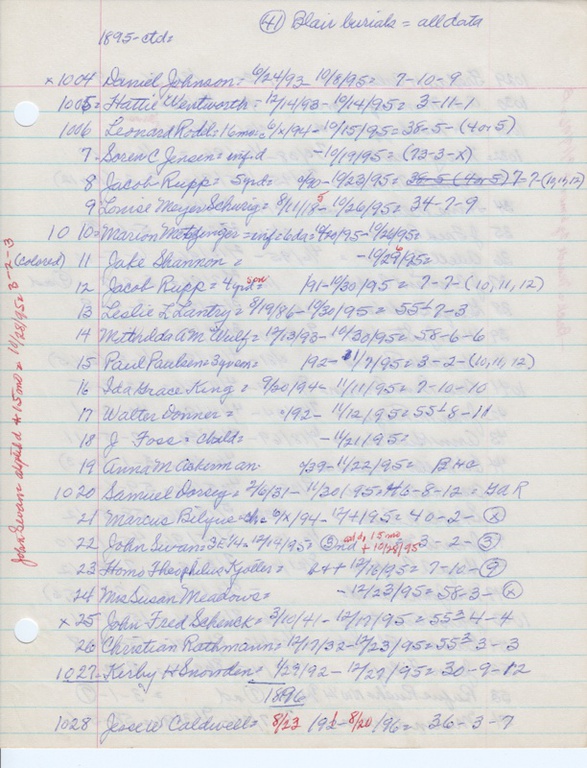 (41) Blair burials = all data
1895 - ctd =
x 1004 Daniel Johnson = 6/24/93 10/8/95 = 7-10-9
1005 = Hattie Wentworth = 12/14/93 - 10/14/95 = 3-11-1
1006 Leonard Rodd = 16 mo = 6/x/94 - 10/15/95 = 38-5-(4 or 5)
7 - Soren C Jensen = inf d - 10/19/95 = (73-3-x)
8 Jacob Rupp = 5 yrd = 9/90 - 10/23/95 = 38-5 (4 or 5) 7-7-(10,11,12)
9 Louise Meyer Schurig = 8/11/ - 10/26/95 = 34-7-9
10 10 = Marion = inf = 6da = 10/20/95 - 10/26/95 =
(colored) 11 Jake Shannon = - 10/29/95 =
12 Jacob Rupp = 4 yrd = /91 - 10/30/95 = 7-7-(10,11,12)
13 Leslie L Lantry = 8/19/86 - 10/30/95 = 55½ 7-3
14 Mathilda A M Wulf = 12/13/93 - 10/30/95 = 58-6-6
15 Paul Paulsen = 3 y = /92 - 11/7/95 = 3-2-(10,11,12)
16 Ida Grace King = 9/20/94 - 11/11/95 = 7-10-10
17 Walter Donner = /92 - 11/12/95 = 55½ 8-11
18 J Foss = child = - 11/21/95 =
19 Anna M Ackerman 9/39 - 11/22/95 =
1020 Samuel Dorsey = 2/6/31 - 11/30/95 = H6-8-12 = GAR
21 Marcus Bilyeu = = 6/x/94 - 12/ /95 = 40-2-(x)
22 John Swan = - 12/14/95 = (3) 15 mo + 10/28/95 3-2-(3)
23 Hans Theophilus Kjoller = b + + 12/16/95 = 7-10-(9)
24 Mrs Susan Meadows = - 12/23/95 = 58-3-(x)
x 25 John Fred Schenck = 3/10/41 - 12/17/95 = 55³ 4-4
26 Christian Rathmann = 12/17/32 - 12/23/95 = 55³ 3-3
1027 - Kirby H Snowden = 1/23/92 - 12/27/95 = 30-9-12
1896
1028 Jessie W Caldwell = 8/23 /92 - 8/20 /96 = 36-3-7
John Swan = + 15 mo = 10/28/95 = 3-2-3